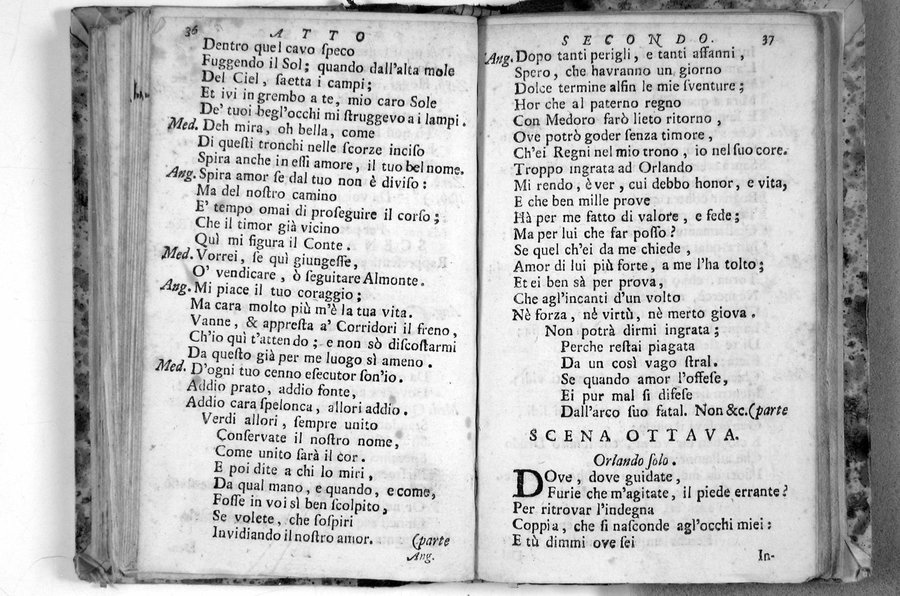 36 ATTO
Dentro quel cavo ſpeco
Fuggendo il Sol; quando dall'alta mole
Del Ciel, ſaetta i campi;
Et ivi in grembo a te, mio caro Sole
De' tuoi begl'occhi mi ſtruggevo a i lampi.
Med. Deh mira, oh bella, come
Di queſti tronchi nelle ſcorze inciſo
Spira anche in eſſi amore, il tuo bel nome.
Ang. Spira amor ſe dal tuo non è diviſo:
Ma del noſtro camino
E' tempo omai di proſeguire il corſo;
Che il timor già vicino
Quì mi figura il Conte.
Med. Vorrei, ſe quì giungeſſe,
O' vendicare, ò ſeguitare Almonte.
Ang. Mi piace il tuo coraggio;
Ma cara molto più m'è la tua vita.
Vanne, & appreſta a' Corridori il freno,
Ch'io quì t'attendo; e non sò diſcoſtarmi
Da queſto già per me luogo sì ameno.
Med. D'ogni tuo cenno eſecutor ſon'io.
Addio prato, addio fonte,
Addio cara ſpelonca, allori addio.
Verdi allori, ſempre unito
Conſervate il noſtro nome,
Come unito ſarà il cor.
E poi dite a chi lo miri,
Da qual mano, e quando, e come,
Foſſe in voi sì ben ſcolpito,
Se volete, che ſoſpiri
Invidiando il noſtro amor. (parte
Ang.
SECONDO. 37
Ang. Dopo tanti perigli, e tanti affanni,
Spero, che havranno un giorno
Dolce termine alfin le mie ſventure;
Hor che al paterno regno
Con Medoro farò lieto ritorno,
Ove potrò goder ſenza timore,
Ch'ei Regni nel mio trono, io nel ſuo core.
Troppo ingrata ad Orlando
Mi rendo, è ver, cui debbo honor, e vita,
E che ben mille prove
Hà per me fatto di valore, e fede;
Ma per lui che far poſſo?
Se quel ch'ei da me chiede,
Amor di lui più forte, a me l'ha tolto;
Et ei ben sà per prova,
Che agl'incanti d'un volto
Nè forza, nè virtù, nè merto giova.
Non potrà dirmi ingrata;
Perche reſtai piagata
Da un così vago ſtral.
Se quando amor l'offeſe,
Ei pur mal ſi difeſe
Dall'arco ſuo fatal. Non &c. (parte
SCENA OTTAVA.
Orlando ſolo.
DOve, dove guidate,
Furie che m'agitate, il piede errante?
Per ritrovar l'indegna
Coppia, che ſi naſconde agl'occhi miei:
E tù dimmi ove ſei
In-